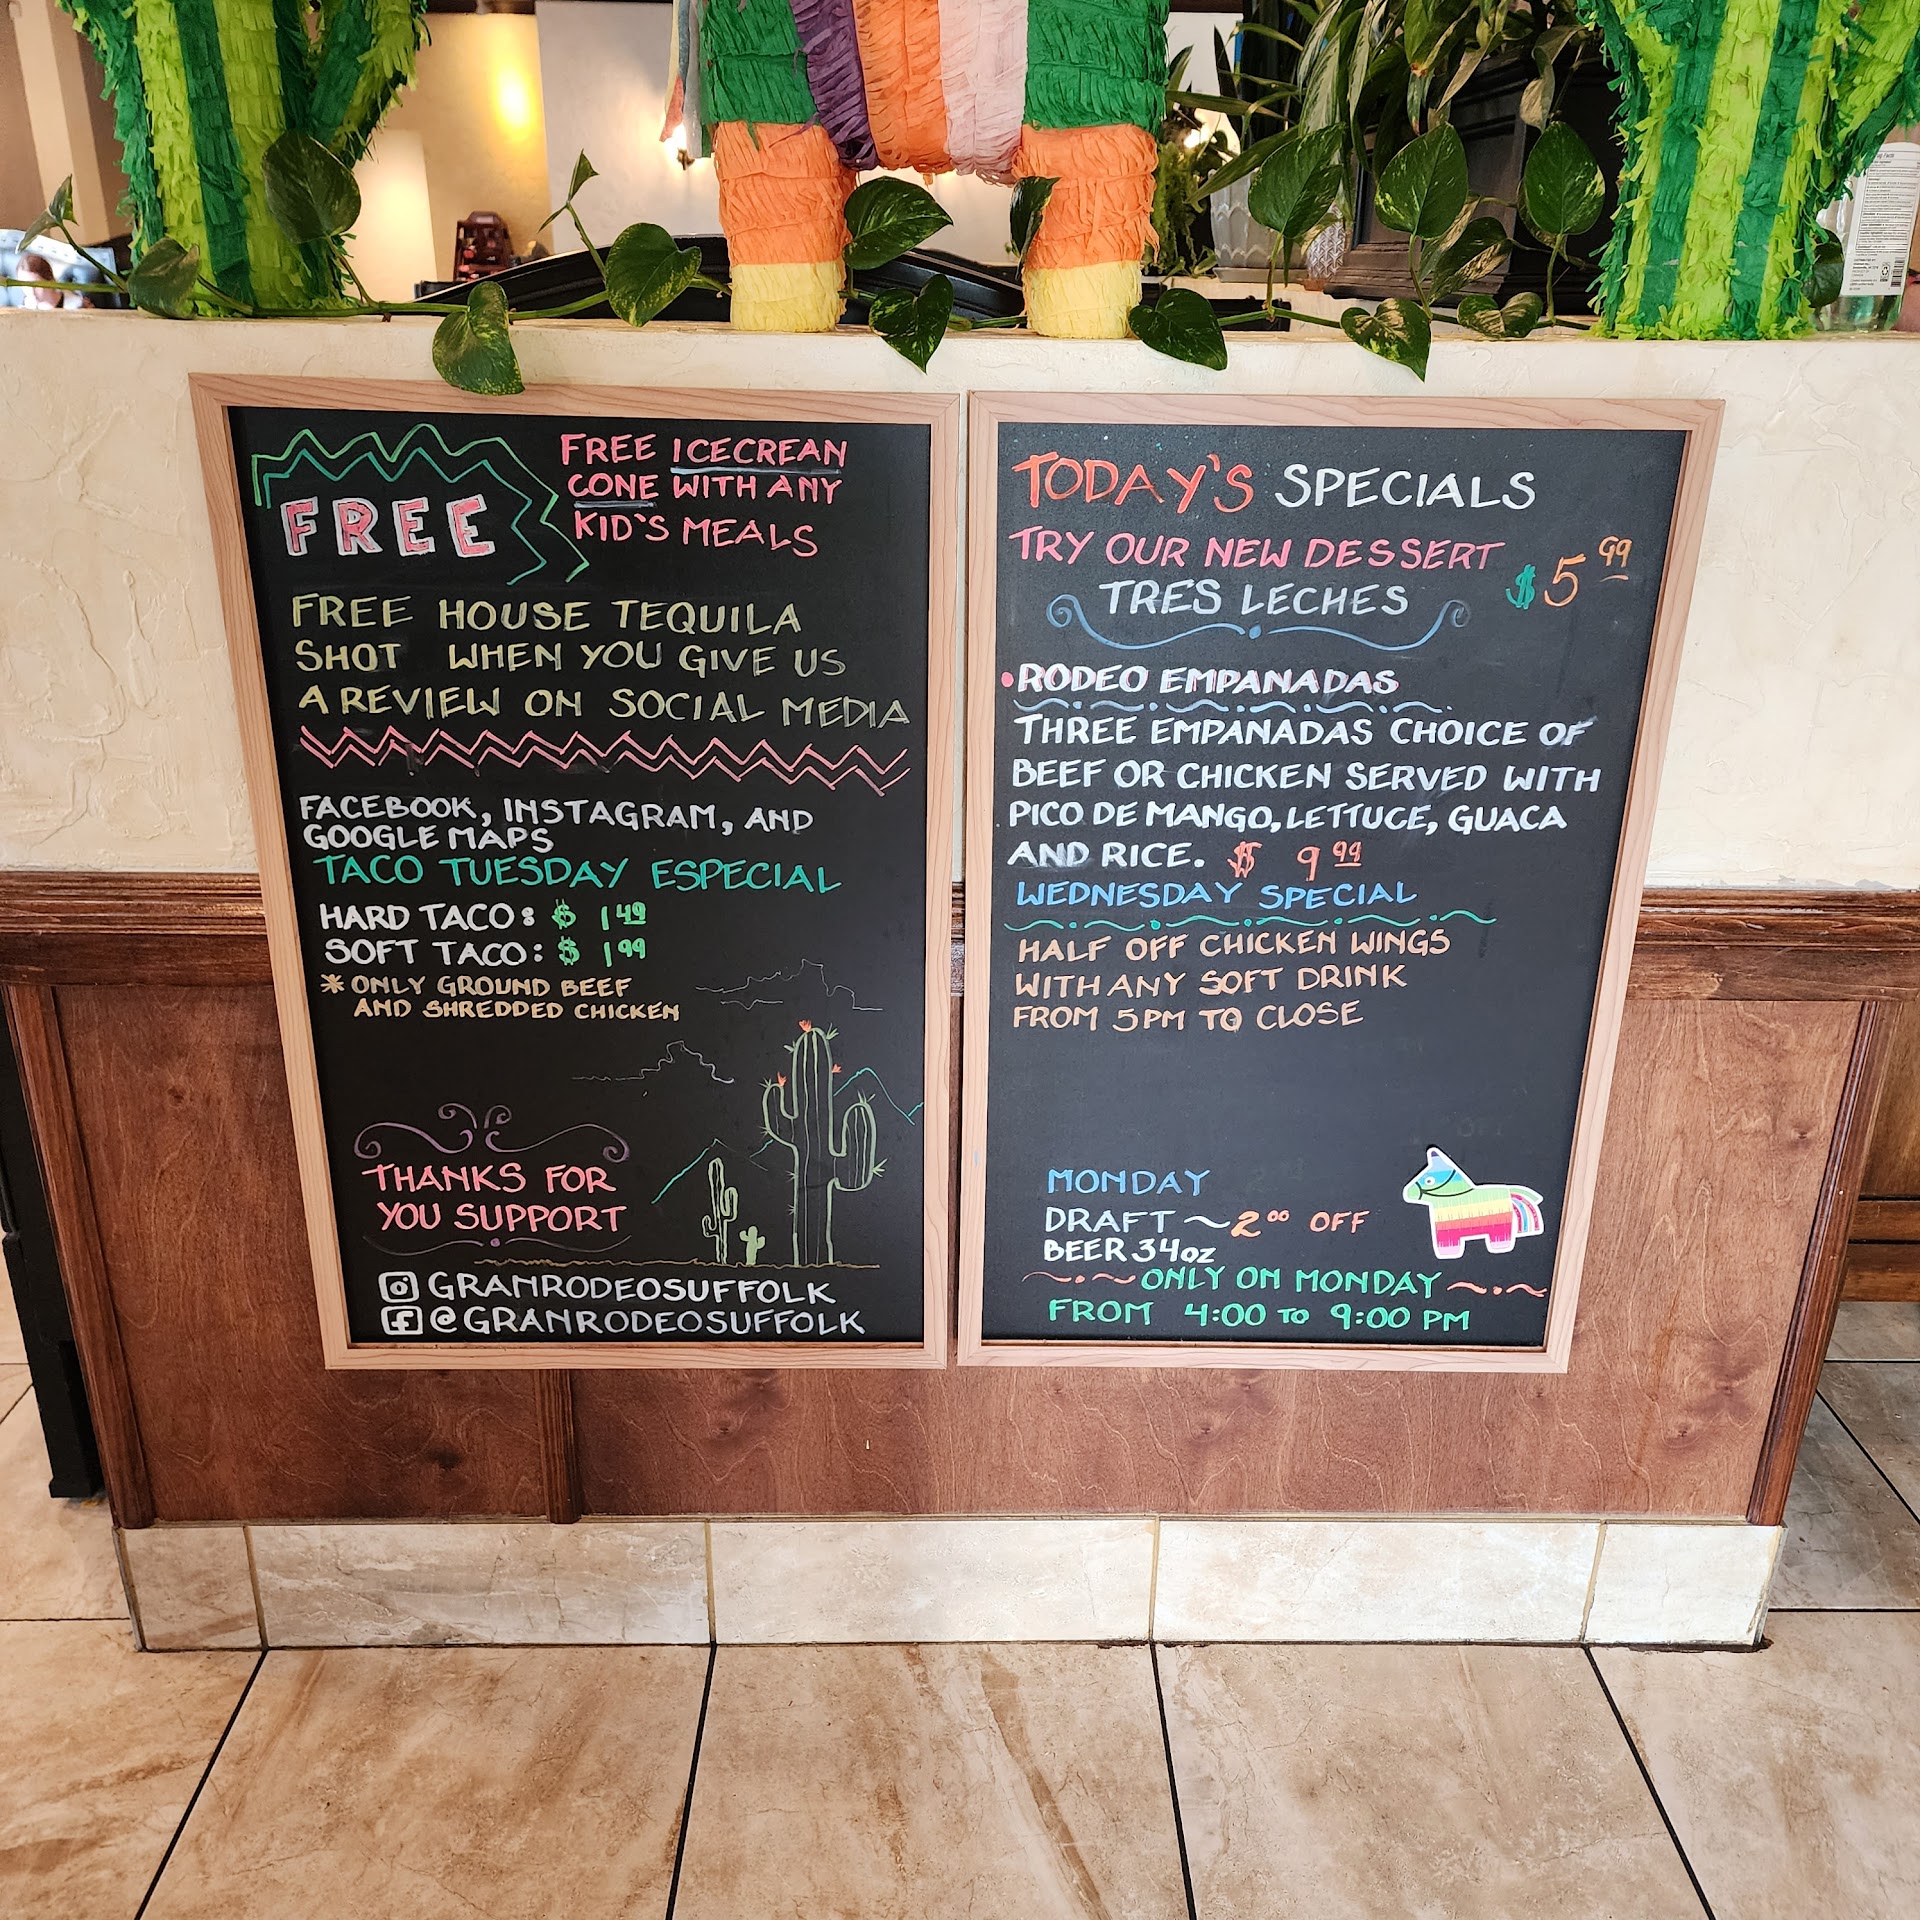 FREE
FREE ICECREAN
CONE WITH ANY
KID'S MEALS
FREE HOUSE TEQUILA
SHOT WHEN YOU GIVE US
A REVIEW ON SOCIAL MEDIA
FACEBOOK, INSTAGRAM, AND
GOOGLE MAPS
TACO TUESDAY ESPECIAL
HARD TACO: $ 1 49
SOFT TACO: $ 1 99
* ONLY GROUND BEEF
AND SHREDDED CHICKEN
THANKS FOR
YOU SUPPORT
GRANRODEOSUFFOLK
@GRANRODEOSUFFOLK
TODAY'S SPECIALS
TRY OUR NEW DESSERT
TRES LECHES
$5 99
• RODEO EMPANADAS
THREE EMPANADAS CHOICE OF
BEEF OR CHICKEN SERVED WITH
PICO DE MANGO, LETTUCE, GUACA
AND RICE. $ 9 99
WEDNESDAY SPECIAL
HALF OFF CHICKEN WINGS
WITH ANY SOFT DRINK
FROM 5PM TO CLOSE
MONDAY
DRAFT ~ 2 00 OFF
BEER 34oz
ONLY ON MONDAY
FROM 4:00 TO 9:00 PM